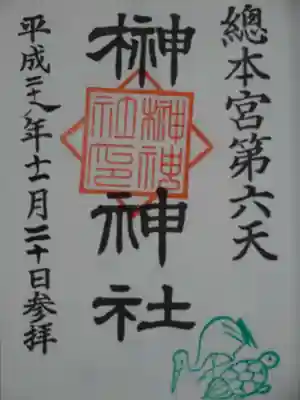 總本宮第六天
榊神社
榊神
社印
平成二十八年十二月二十日参拝